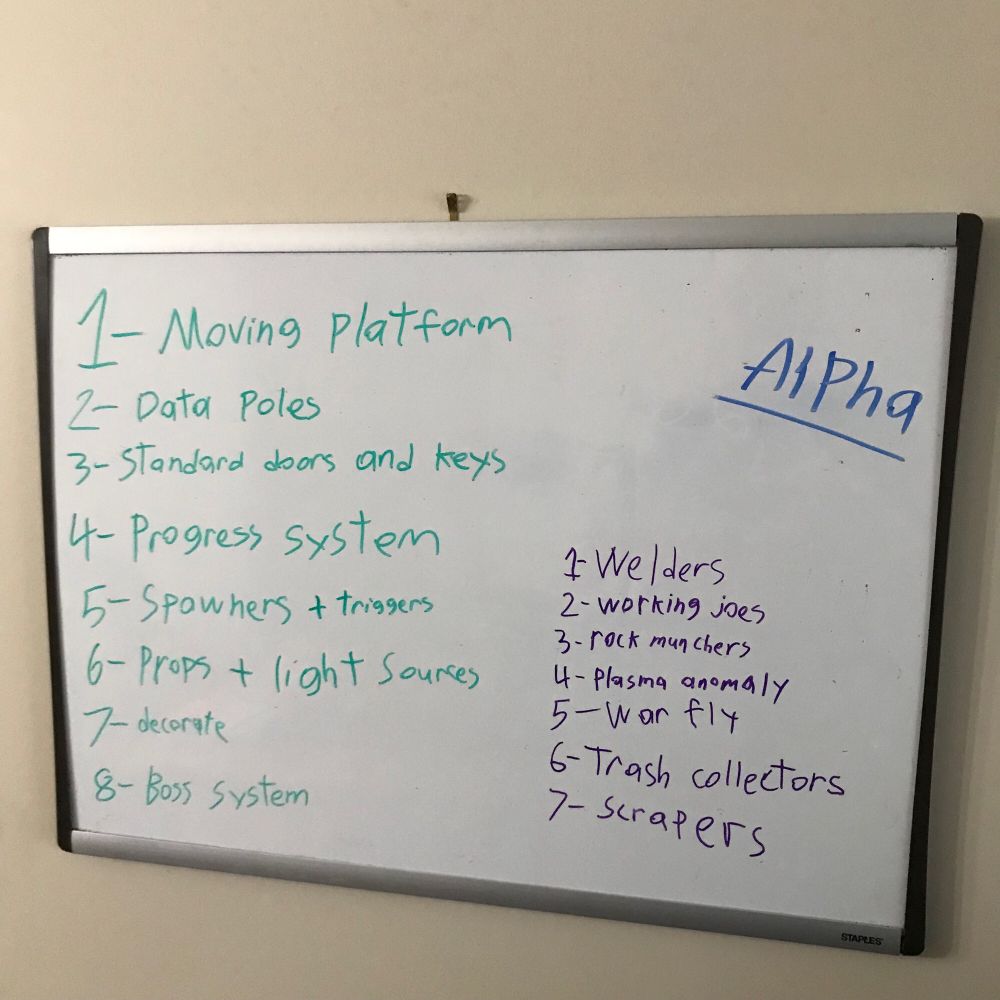 1- Moving platform
2- Data Poles
3- Standard doors and keys
4- Progress system
5- Spawners + triggers
6- Props + light Sources
7- decorate
8- Boss system
Alpha
1- Welders
2- working joes
3- rock munchers
4- Plasma anomaly
5- War fly
6- Trash collectors
7- scrapers
STAPLES